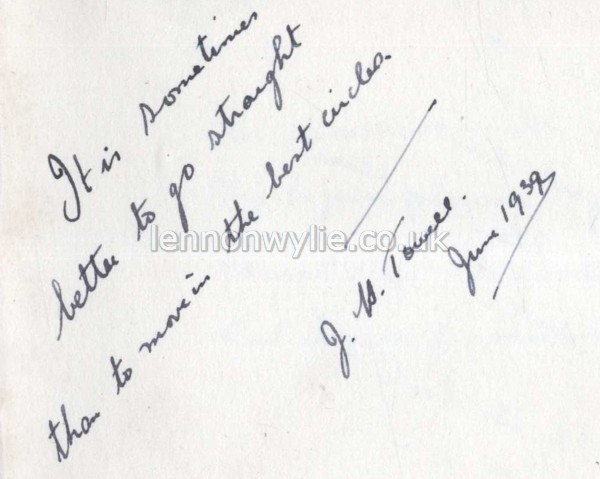 It is sometimes
better to go straight
than to move in the best circles.
J. H. Towell.
June 1939
lennonwylie.co.uk